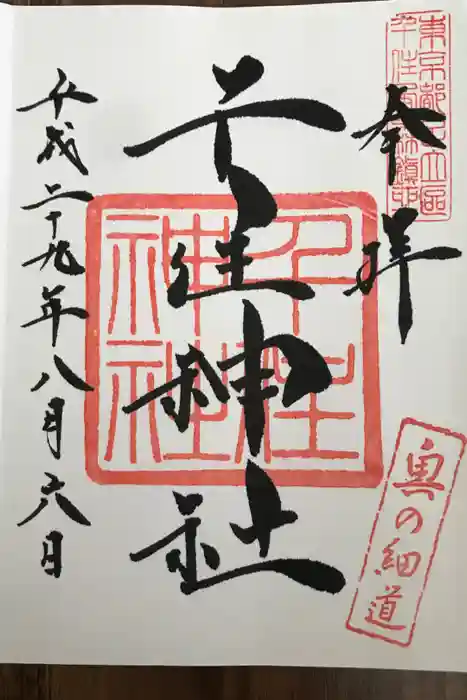 東京都足立區
千住宮元鎮印
奉拝
千住神社
千住
神社
奥の細道
平成二十九年八月六日